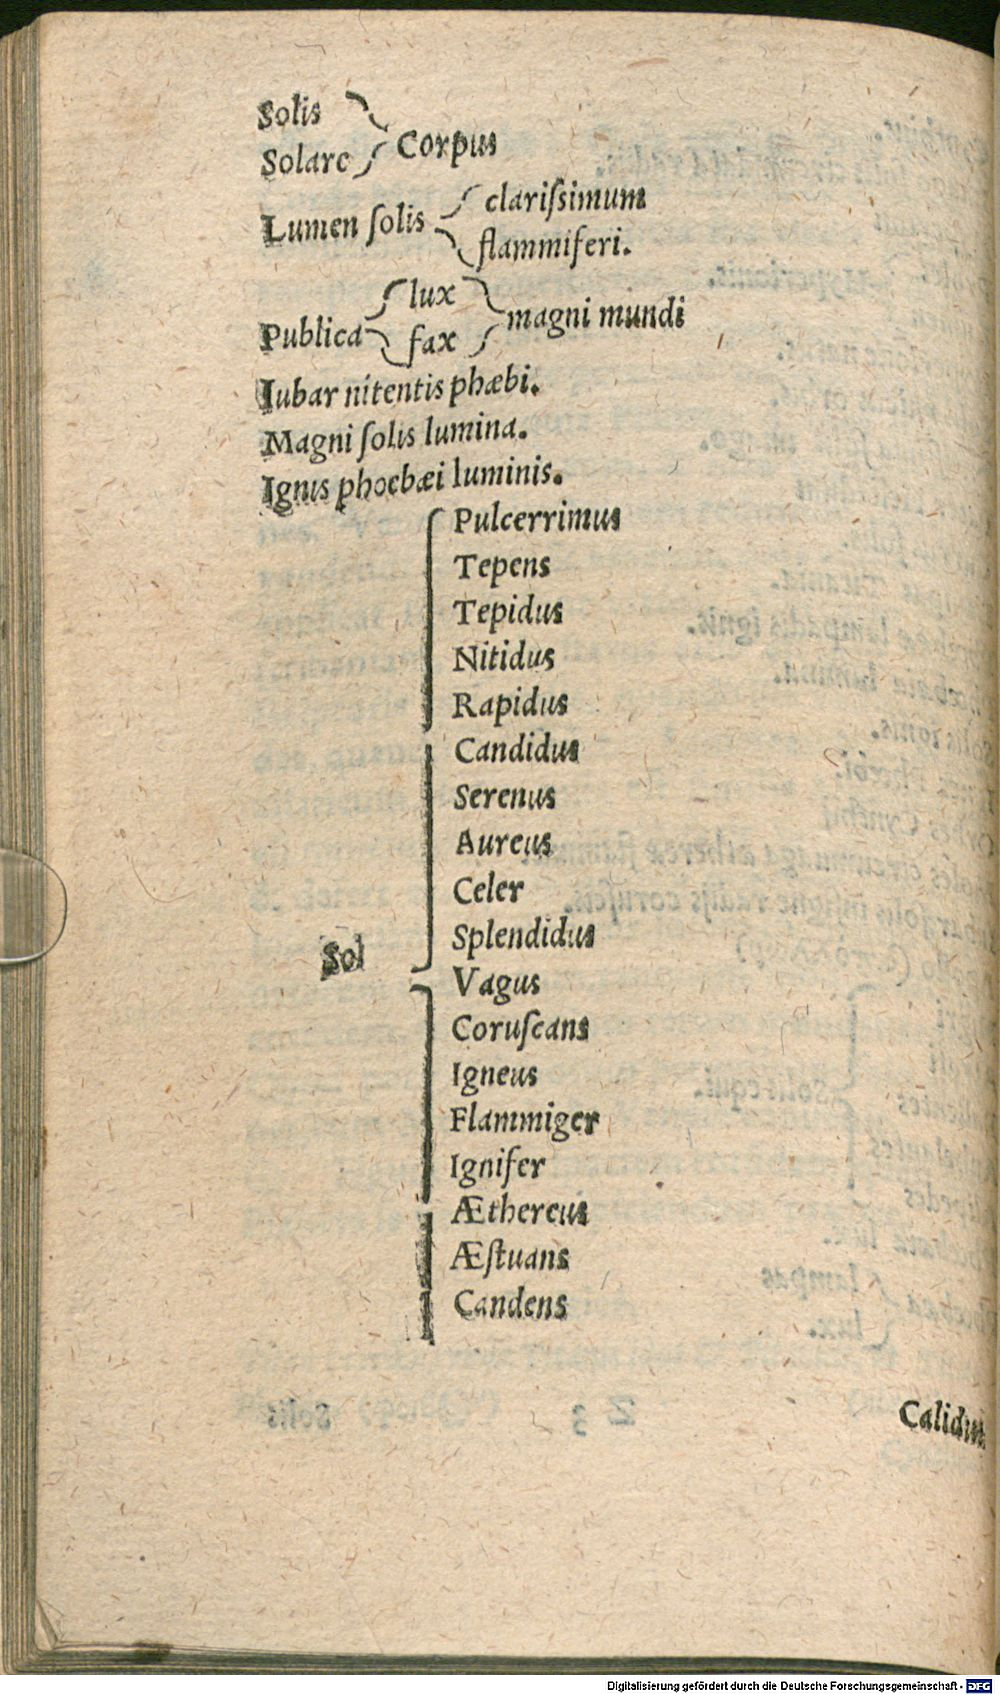 Solis
Solare
Corpus
Lumen ſolis
clariſsimum
flammiferi.
Publica
lux
fax
magni mundi
Iubar nitentis phæbi.
Magni ſolis lumina.
Ignis phoebæi luminis.
Pulcerrimus
Tepens
Tepidus
Nitidus
Rapidus
Candidus
Serenus
Aureus
Celer
Splendidus
Sol
Vagus
Coruſcans
Igneus
Flammiger
Ignifer
Æthereus
Æſtuans
Candens
Calidus
Digitalisierung gefördert durch die Deutsche Forschungsgemeinschaft - DFG